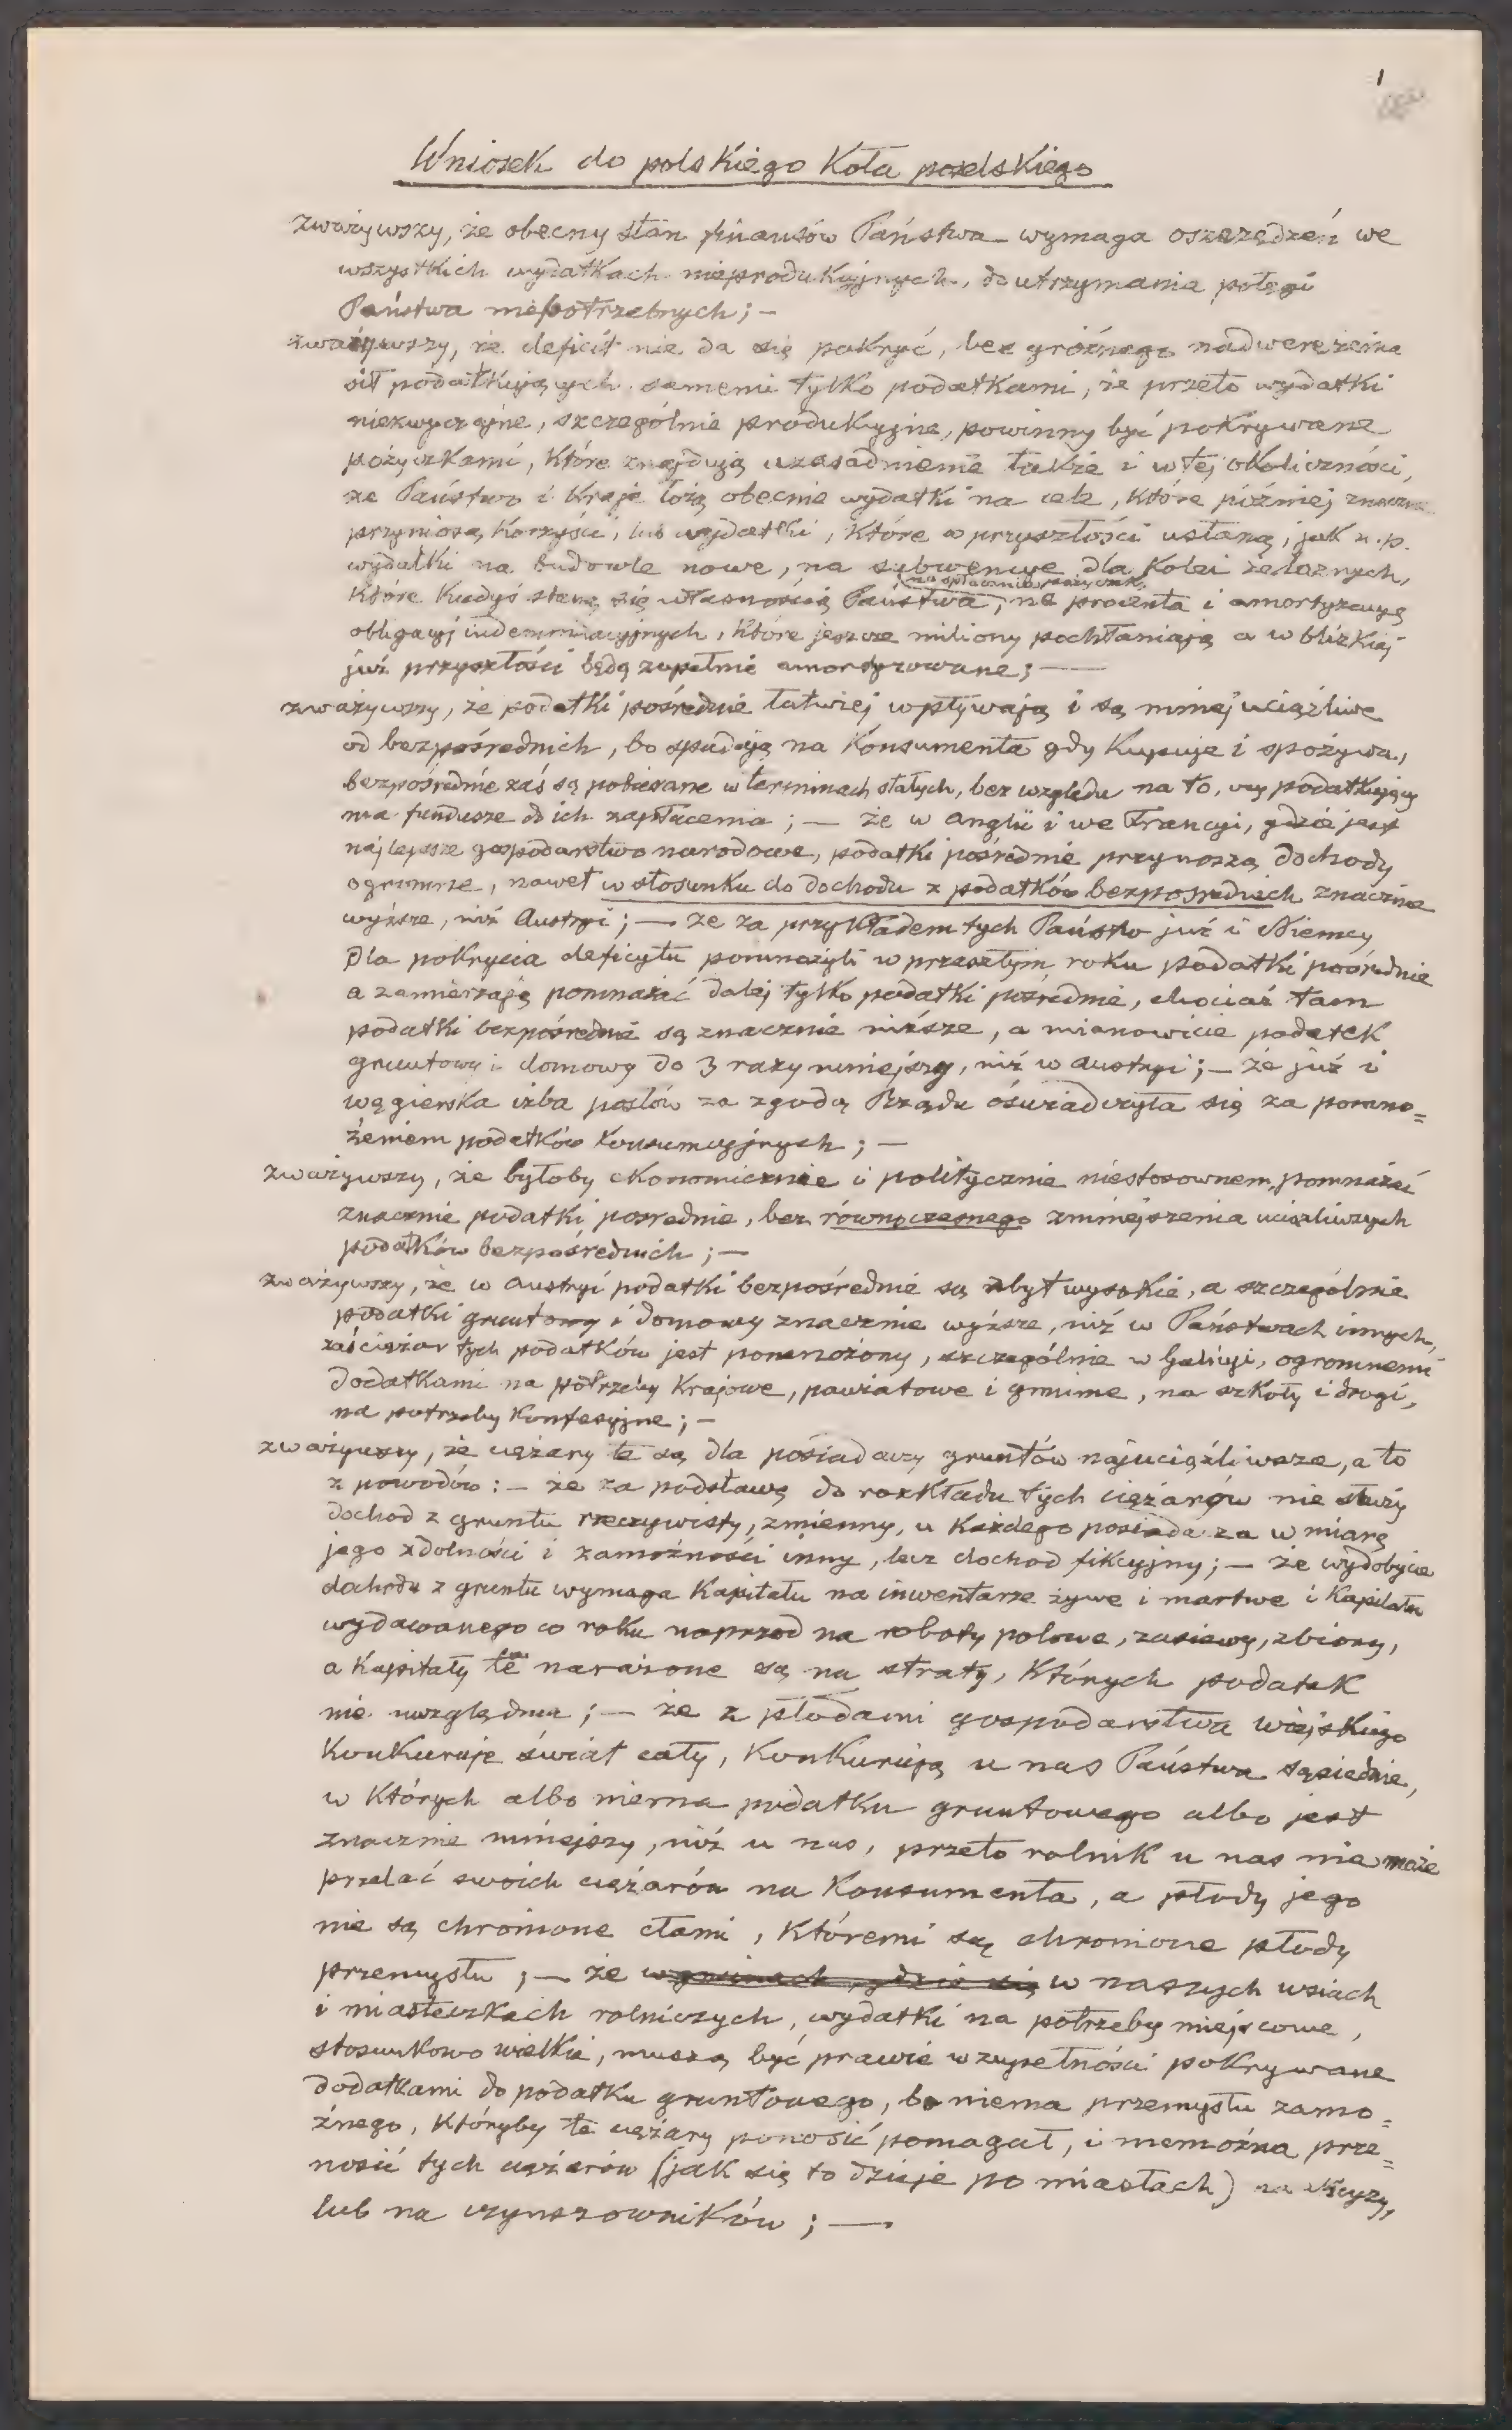 1
Wniosek do polskiego Koła poselskiego
zważywszy, że obecny stan finansów Państwa wymaga oszczędzeń we
wszystkich wydatkach nieprodukcyjnych, do utrzymania potęgi
Państwa niepotrzebnych; —
zważywszy, że deficit nie da się pokryć, bez groźnego nadwerężenia
sił podatkujących samemi tylko podatkami, że przeto wydatki
niezwyczajne, szczególnie produkcyjne, powinny być pokrywane
pożyczkami, które znajdują uzasadnienie także i w tej okoliczności,
że Państwo i Kraje łożą obecnie wydatki na cele, które później znaczne
przyniosą korzyści, lub wydatki, które w przyszłości ustaną, jak n.p.
wydatki na budowle nowe, na subwencye dla Kolei żelaznych,
na spłacanie pożyczek,
które kiedyś staną się własnością Państwa, na procenta i amortyzacyą
obligacyj indemnizacyjnych, które jeszcze miliony pochłaniają a w blizkiej
już przyszłości będą zupełnie amortyzowane; —
zważywszy, że podatki pośrednie łatwiej wpływają i są mniej uciążliwe
od bezpośrednich, bo spadają na Konsumenta gdy Kupuje i spożywa,
bezpośrednie zaś są pobierane w terminach stałych, bez względu na to, czy podatkujący
ma fundusze do ich zapłacenia; — że w Anglii i we Francyi, gdzie jest
najlepsze gospodarstwo narodowe, podatki pośrednie przynoszą dochody
ogromne, nawet w stosunku do dochodu z podatków bezpośrednich znacznie
wyższe, niż Austryi; — że za przykładem tych Państw już i Niemcy
dla pokrycia deficytu pomnożyli w przeszłym roku podatki pośrednie
a zamierzają pomnażać dalej tylko podatki pośrednie, chociaż tam
podatki bezpośrednie są znacznie niższe, a mianowicie podatek
gruntowy i domowy do 3 razy mniejszy, niż w Austryi; — że już i
węgierska izba posłów za zgodą Rządu oświadczyła się za pomno=
żeniem podatków konsumcyjnych; —
zważywszy, że byłoby ekonomicznie i politycznie niestosownem, pomnażać
znacznie podatki pośrednie, bez równoczesnego zmniejszenia uciążliwszych
podatków bezpośrednich; —
zważywszy, że w Austryi podatki bezpośrednie są zbyt wysokie, a szczególnie
podatki gruntowy i domowy znacznie wyższe, niż w Państwach innych,
zaś ciężar tych podatków jest pomnożony, szczególnie w Galicyi, ogromnemi
dodatkami na potrzeby Krajowe, powiatowe i gminne, na szkoły i drogi,
na potrzeby Konfesyjne; —
zważywszy, że ciężary te są dla posiadaczy gruntów najuciążliwsze, a to
z powodów: — że za podstawę do rozkładu tych ciężarów nie służy
dochod z gruntu rzeczywisty, zmienny, u Każdego posiadacza w miarę
jego zdolności i zamożności inny, lecz dochod fikcyjny; — że wydobycie
dochodu z gruntu wymaga Kapitału na inwentarze żywe i martwe i Kapitału
wydawanego co roku naprzod na roboty polowe, zasiewy, zbiory,
a Kapitały te narażone są na straty, których podatek
nie uwzględnia; — że z płodami gospodarstwa wiejskiego
Konkuruje świat cały, Konkurują u nas Państwa sąsiednie,
w których albo niema podatku gruntowego albo jest
znacznie mniejszy, niż u nas, przeto rolnik u nas nie może
przelać swoich ciężarów na Konsumenta, a płody jego
nie są chronione cłami, któremi są chronione płody
przemysłu; — że w gminach, gdzie się w naszych wsiach
i miasteczkach rolniczych, wydatki na potrzeby miejscowe,
stosunkowo wielkie, muszą być prawie w zupełności pokrywane
dodatkami do podatku gruntowego, bo niema przemysłu zamo=
żnego, któryby te ciężary ponosić pomagał, i niemożna prze=
nosić tych ciężarów (jak się to dzieje po miastach) na
lub na czynszowników; —